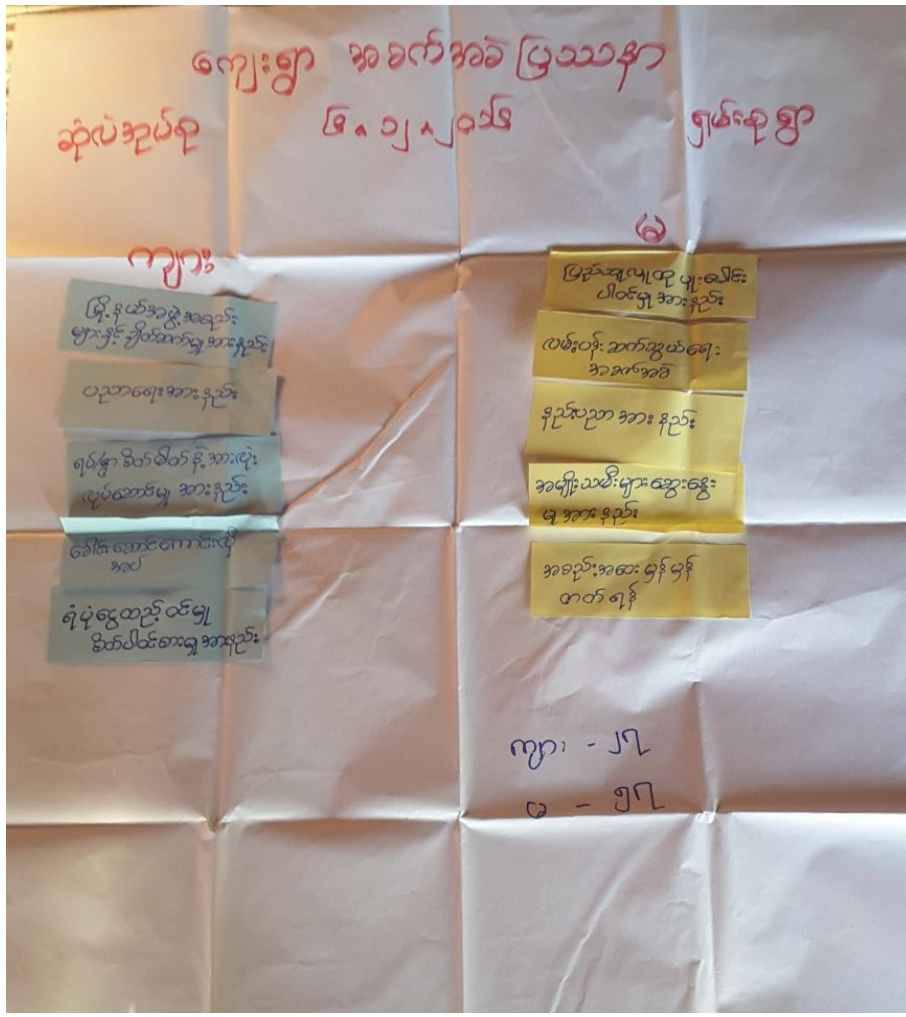 ကျေးရွာ အခက်အခဲ ပြဿနာ
ဆုံလဲအုပ်စု
ရှမ်းစုရွာ
ကျား
မြို့နယ်အဖွဲ့အစည်း
များနှင့်ချိတ်ဆက်မှုအားနည်း
ပညာရေးအားနည်း
ရပ်/ရွာ စိတ်ဓါတ်နဲ့အားလုံး
လုပ်ဆောင်မှု အားနည်း
ခေါင်းဆောင်ကောင်းလို
အပ်
ရံပုံငွေထည့်ဝင်မှု
စိတ်ပါဝင်စားမှုအားနည်း
မ
ပြည်သူလူထု ပူးပေါင်း
ပါဝင်မှုအားနည်း
လမ်းပန်းဆက်သွယ်ရေး
အခက်အခဲ
နည်းပညာ အားနည်း
အမျိုးသမီးများဆွေးနွေး
မှုအားနည်း
အစည်းအဝေး မှန်မှန်
တတ်ရန်
ကျား - ၂၇
မ - ၅၇